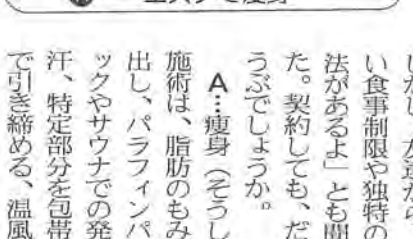 い食事制限や独特の
法があるよ」とも聞
た。契約しても、だ
うぶでしょうか。
A…痩身（そうし
施術は、脂肪のもみ
出し、パラフィンパ
ックやサウナでの発
汗、特定部分を包帯
で引き締める、温風